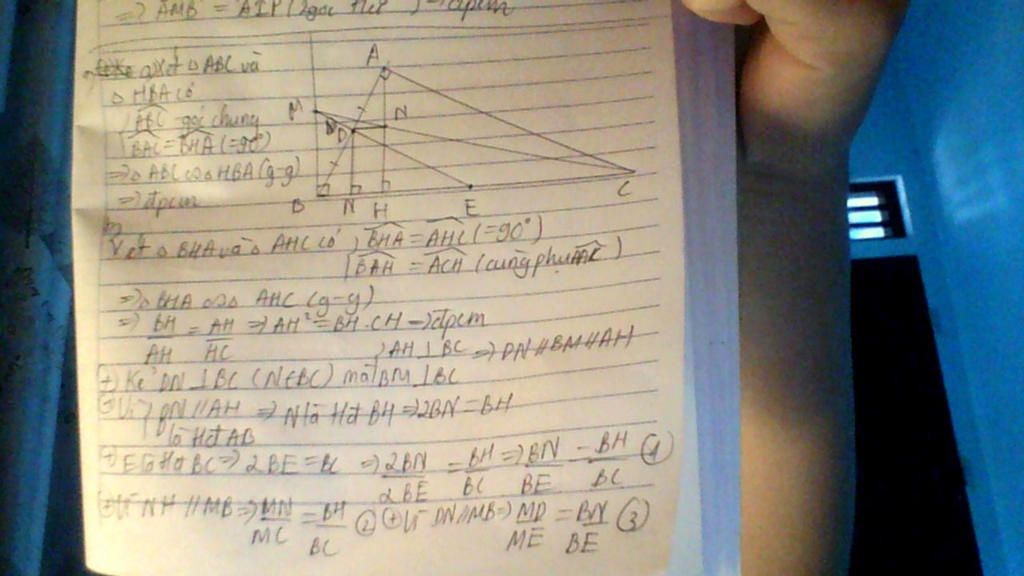 => AMB = AIP (2góc ) => đpcm
a) Xét △ ABC và
△ HBA có
ABC góc chung
BAC = BHA (=90°)
=> △ ABC ∽ △ HBA (g-g)
=> đpcm
A
M
N
D
B
N
H
E
C
b)
Xét △ BHA và △ AHC có BHA = AHC (=90°)
BAH = ACH (cùng phụ )
=> △ BHA ∽ △ AHC (g-g)
=> BH/AH = AH/HC => AH² = BH.CH => đpcm
AH ⊥ BC => DN // BM // AH
+) Kẻ DN ⊥ BC (N∈BC) mà BM ⊥ BC
+) Vì DN // AH => N là tđ BH => 2BN = BH
D là tđ AB
+) E là tđ BC => 2BE = BC => 2BN/2BE = BH/BC => BN/BE = BH/BC (1)
+) Vì NH // MB => MN/MC = BH/BC (2) +) Vì DN // MB => MD/ME = BN/BE (3)